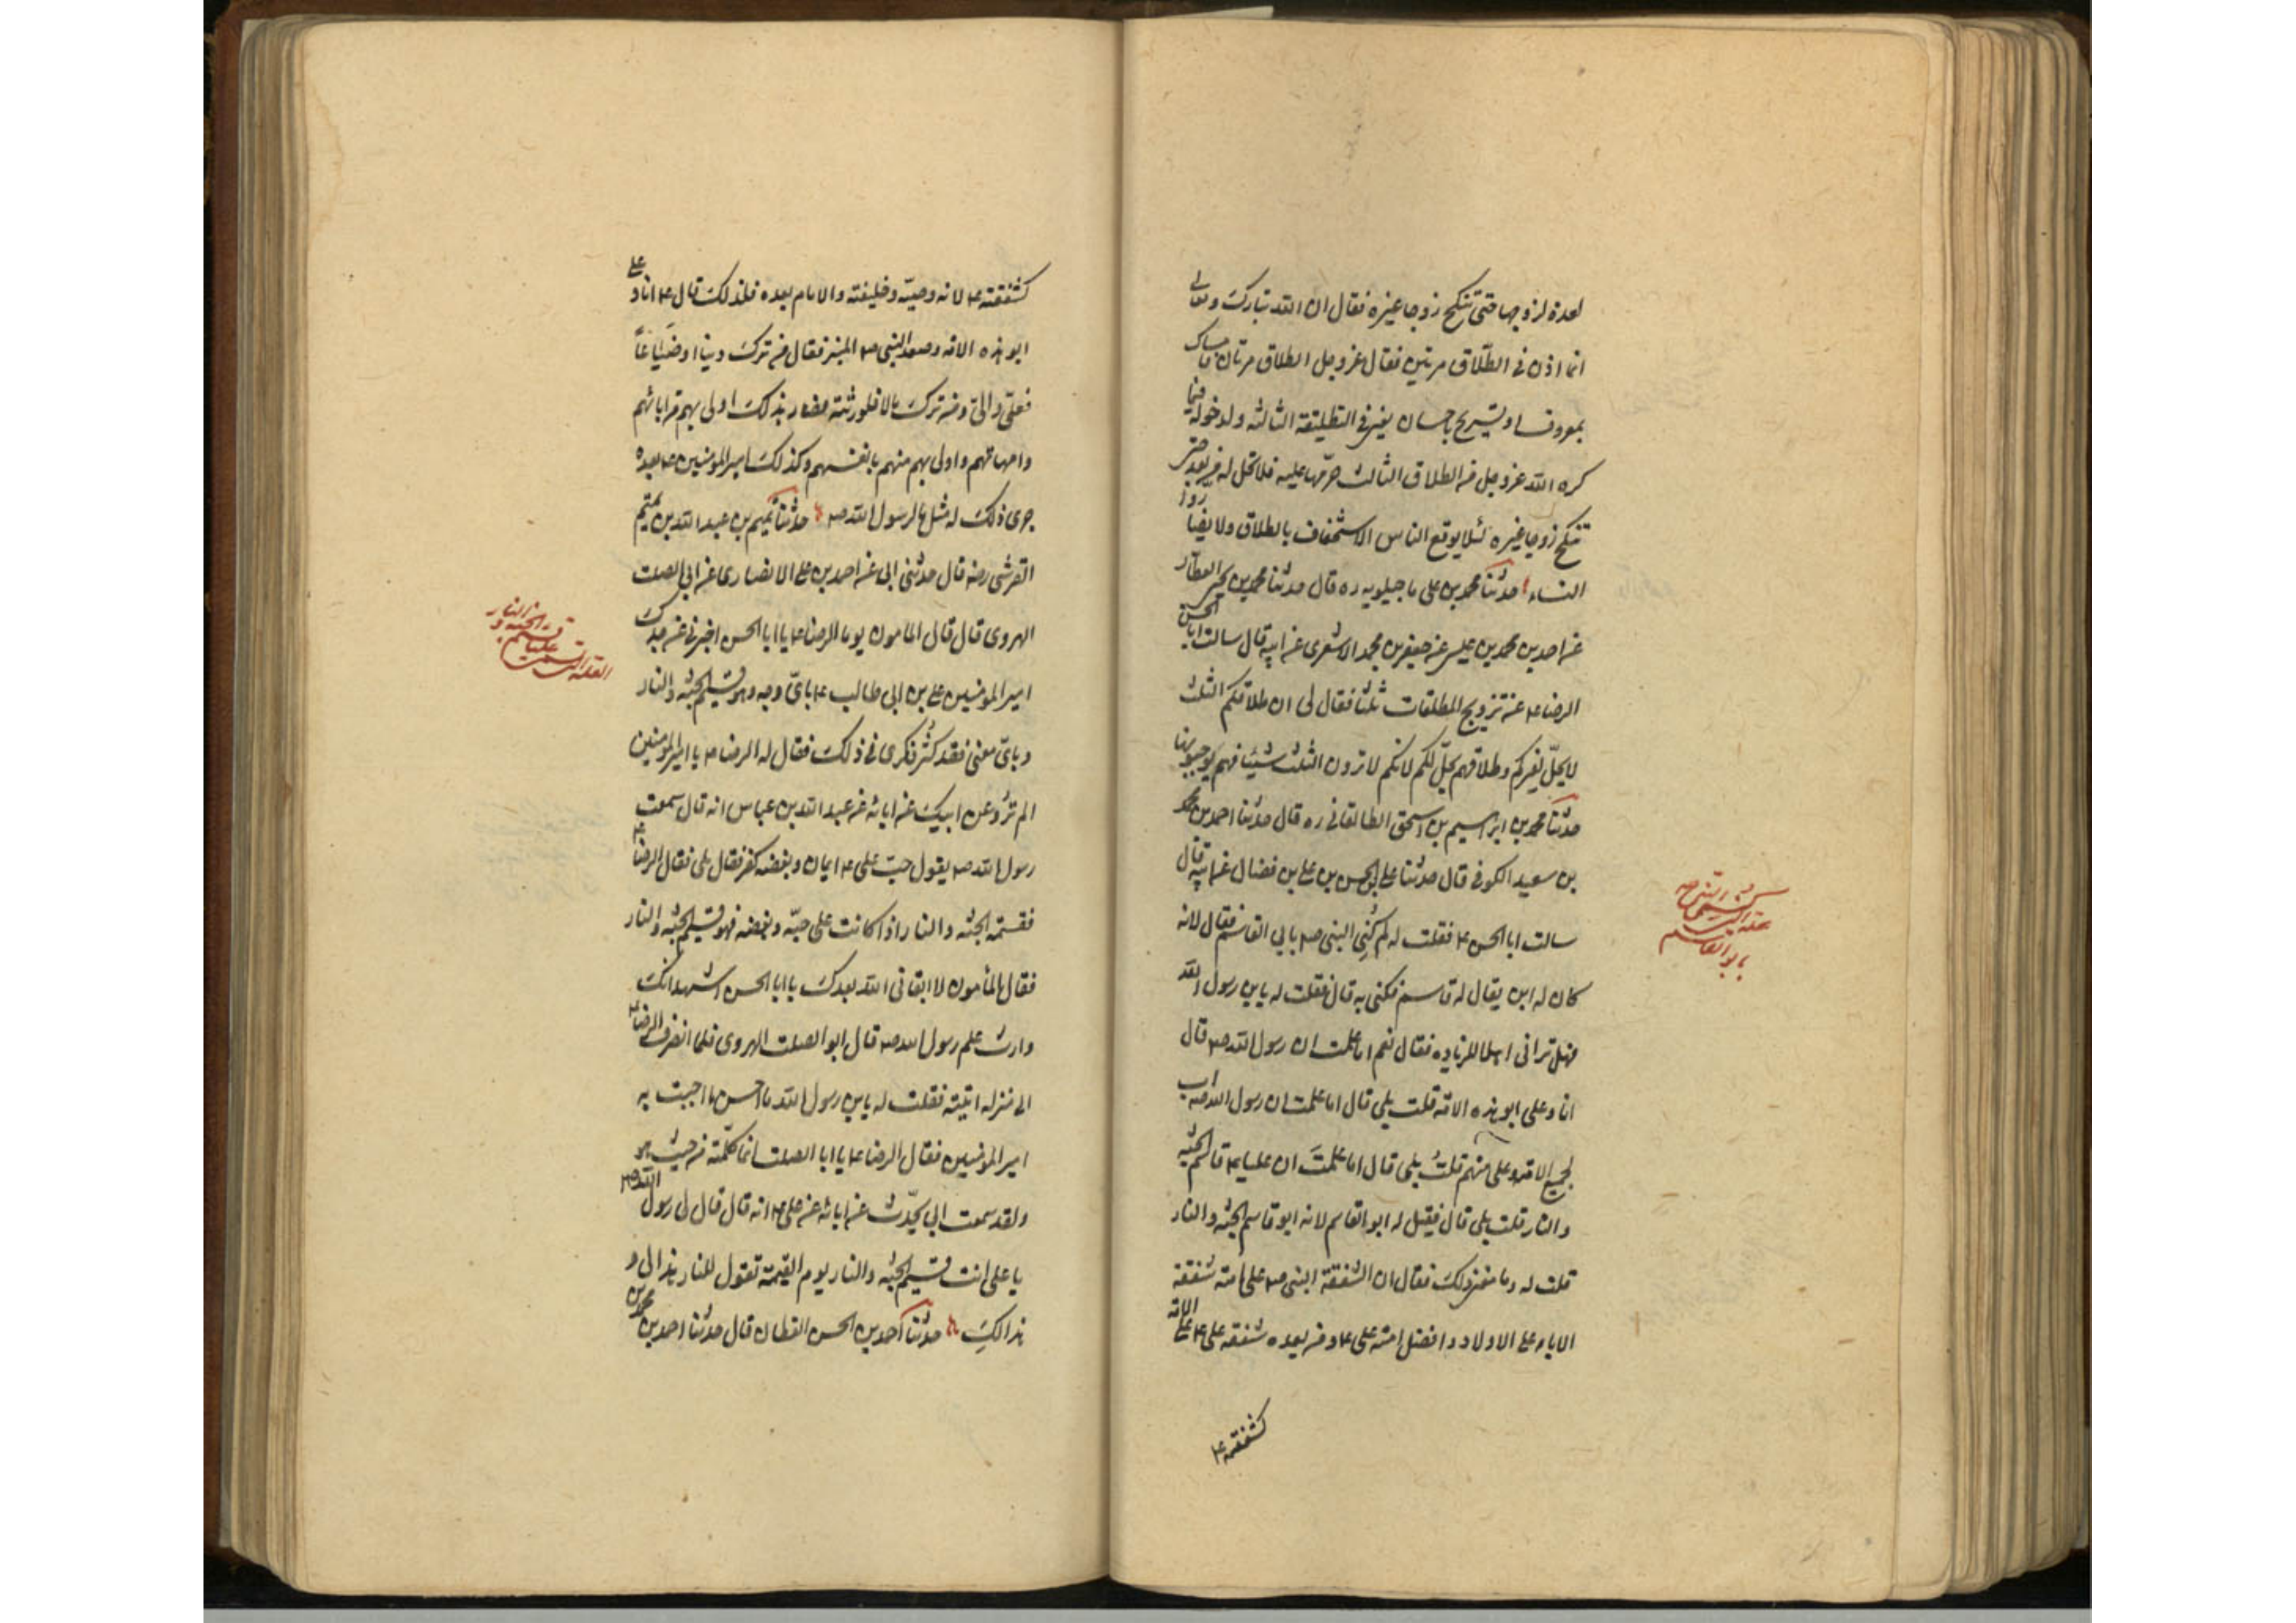 لعدة لزوجها حتى تنكح زوجا غيره فقال ان الله تبارك وتعالى
انما اذن فى الطلاق مرتين فقال عز وجل الطلاق مرتان فامساك
بمعروف او تسريح باحسان يعنى فى التطليقة الثالثه ولدخوله فيما
كره الله عز وجل من الطلاق الثالث حرمها عليه فلا تحل له من بعد حتى
تنكح زوجا غيره لئلا يوقع الناس الاستخفاف بالطلاق ولا يضاروا
النساء حدثنا محمد بن على ماجيلويه ره قال حدثنا محمد بن يحيى العطار
عن احمد بن محمد بن عيسى عن جعفر بن محمد الاشعرى عن ابيه قال سالت ابا الحسن
الرضا ع عن تزويج المطلقات ثلثا فقال لى ان طلاقكم الثلث
لا يحل لغيركم وطلاقهم يحل لكم لانكم لا ترون الثلث شيئا وهم يوجبونها
حدثنا محمد بن ابراهيم بن اسحق الطالقانى ره قال حدثنا احمد بن محمد
بن سعيد الكوفى قال حدثنا على بن الحسن بن على بن فضال عن ابيه قال
سالت ابا الحسن ع فقلت له لم كنى النبى ص بابى القاسم فقال لانه
كان له ابن يقال له قاسم فكنى به قال فقلت له يابن رسول الله
فهل ترانى اهلا للزياده فقال نعم اما علمت ان رسول الله ص قال
انا وعلى ابو هذه الامة قلت بلى قال اما علمت ان رسول الله ص اب
لجميع الامة وعلى منهم قلت بلى قال اما علمت ان عليا ع قاسم الجنه
والنار قلت بلى قال فقيل له ابو القاسم لانه ابو قاسم الجنه والنار
قلت له وما معنى ذلك فقال ان الشفقة النبى ص على امته شفقة
الاباء على الاولاد وافضل امته على ع ومن بعده شفقة على ع على الامة
كشفقته ع
كشفقته ع لانه وصيه وخليفته والامام بعده فلذلك قال ع انا وعلى
ابو هذه الامة وصعد النبى ص المنبر فقال من ترك دينا او ضياعا
فعلى والى ومن ترك مالا فلورثته فصار بذلك اولى بهم من ابائهم
وامهاتهم واولى بهم منهم بانفسهم وكذلك امير المؤمنين ع بعده
جرى ذلك له مثل ما لرسول الله ص حدثنا تميم بن عبد الله بن تميم
القرشى رضه قال حدثنى ابى عن احمد بن على الانصارى عن ابى الصلت
الهروى قال قال المامون يوما للرضا ع يا ابا الحسن اخبرنى عن جدك
امير المؤمنين على بن ابى طالب ع باى وجه وهو قسيم الجنه والنار
وباى معنى فقد كثر فكرى فى ذلك فقال له الرضا ع يا امير المؤمنين
الم ترو عن ابيك عن ابائه عن عبد الله بن عباس انه قال سمعت
رسول الله ص يقول حب على ع ايمان وبغضه كفر فقال بلى فقال الرضا ع
فقسمة الجنه والنار اذا كانت على حبه وبغضه فهو قسيم الجنه والنار
فقال المأمون لا ابقانى الله بعدك يا ابا الحسن اشهد انك
وارث علم رسول الله ص قال ابو الصلت الهروى فلما انصرف الرضا ع
الى منزله اتيته فقلت له يابن رسول الله ما احسن ما اجبت به
امير المؤمنين فقال الرضا ع يا ابا الصلت انما كلمته من حيث هو
ولقد سمعت ابى يحدث عن ابائه عن على ع انه قال قال لى رسول الله ص
يا على انت قسيم الجنه والنار يوم القيمة تقول للنار هذا لى و
هذا لك حدثنا احمد بن الحسن القطان قال حدثنا احمد بن محمد بن